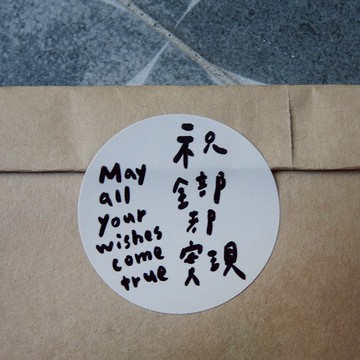 May
all
your
wishes
come
true
祝
全部
都
實現